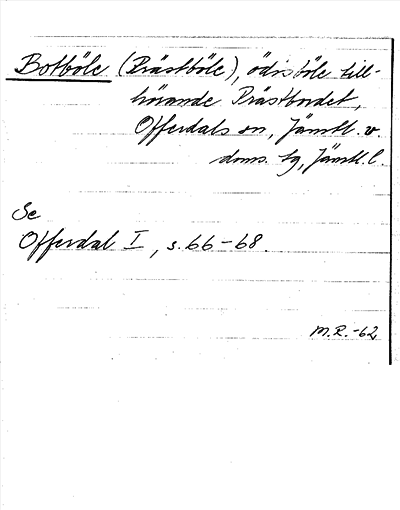 Botböle (Prästböle), ödesböle till-
hörande Prästbordet,
Offerdals sn, Jämtl. v.
doms. tg, Jämtl. l.
Se
Offerdal I, s. 66-68.
M.R.-62